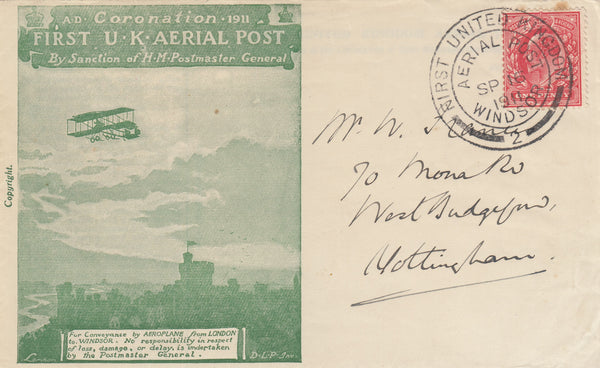 A·D· Coronation · 1911
FIRST U·K·AERIAL POST
By Sanction of H·M·Postmaster General
Copyright.
For Conveyance by AEROPLANE from LONDON
to WINDSOR. No responsibility in respect
of loss, damage, or delay, is undertaken
by the Postmaster General.
London
D·L·P·Inv.
FIRST UNITED KINGDOM
AERIAL POST
SP
WINDSOR
2
Mr. W.
70 Mona Rd
West Bridgford,
Nottingham.